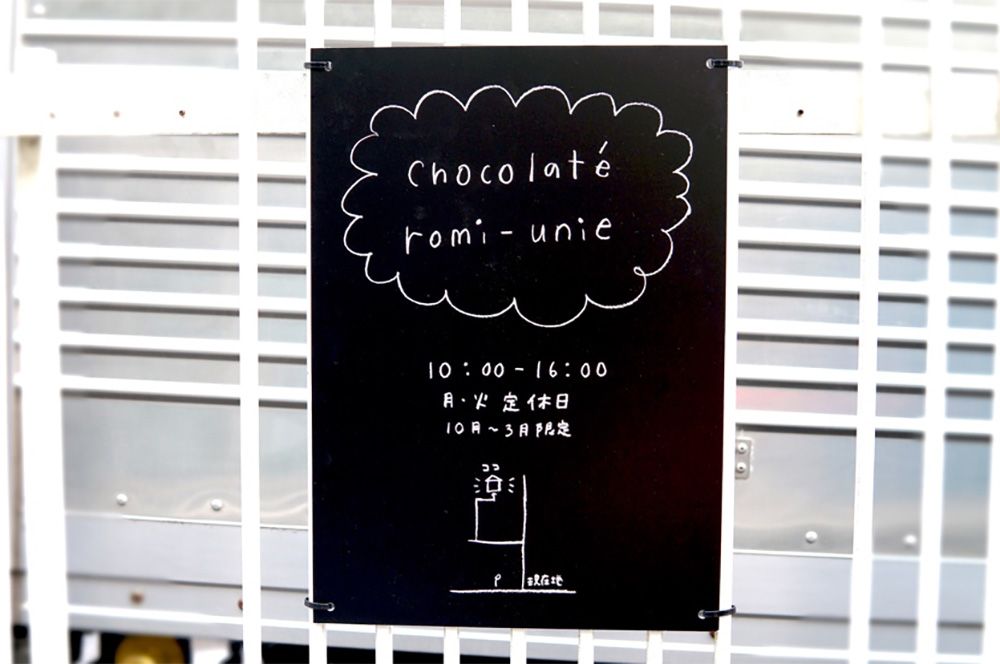 chocolaté
romi-unie
10:00-16:00
月・火 定休日
10月～3月限定
ココ
P 現在地